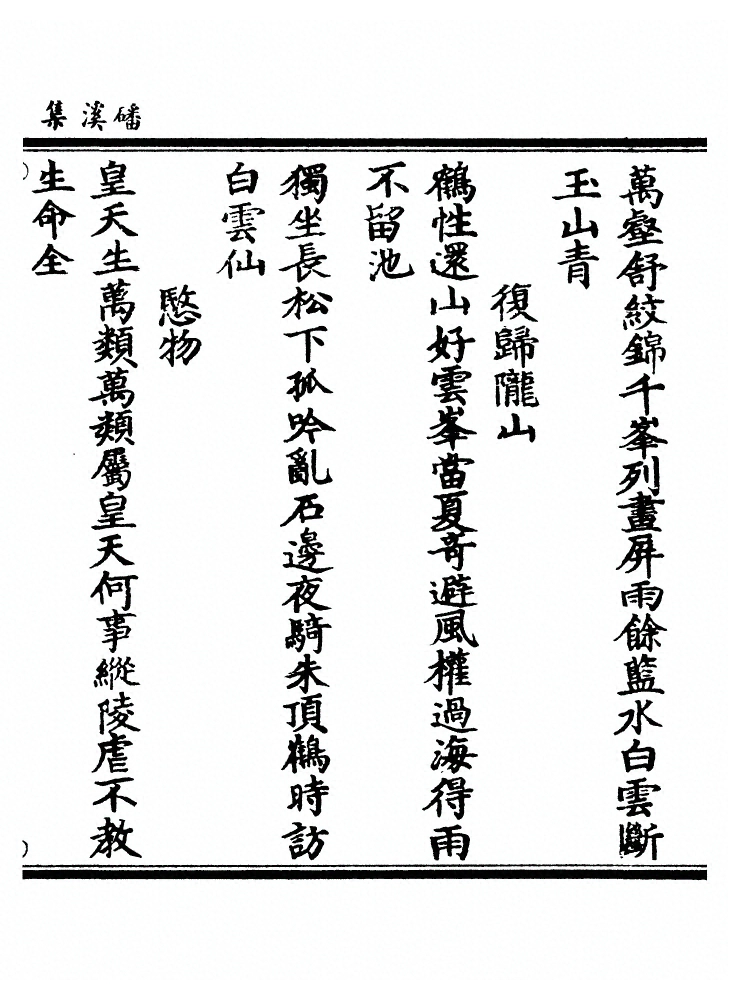 磻溪集
萬壑舒紋錦千峯列畫屏雨餘藍水白雲斷
玉山青
復歸隴山
鶴性還山好雲峯當夏奇避風權過海得雨
不留池
獨坐長松下孤吟亂石邊夜騎朱頂鶴時訪
白雲仙
愍物
皇天生萬類萬類屬皇天何事縱陵虐不教
生命全